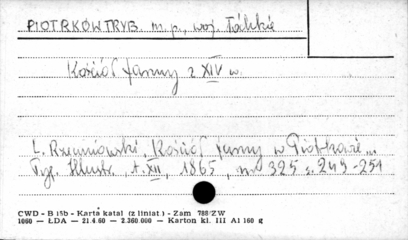 PIOTRKÓW TRYB. m. p., woj. łódzkie
Kościół farny z XIV w.
L. Rzeczniowski, Kościół farny w Piotrkowie...
Tyg. Illustr. t. XII, 1865, nr 325 s. 249-251
CWD - B 15b - Karta katal (z liniat) - Zam 788/ZW
1060 - ŁDA - 21.4.60 - 2.360.000 - Karton kl. III A1 160 g